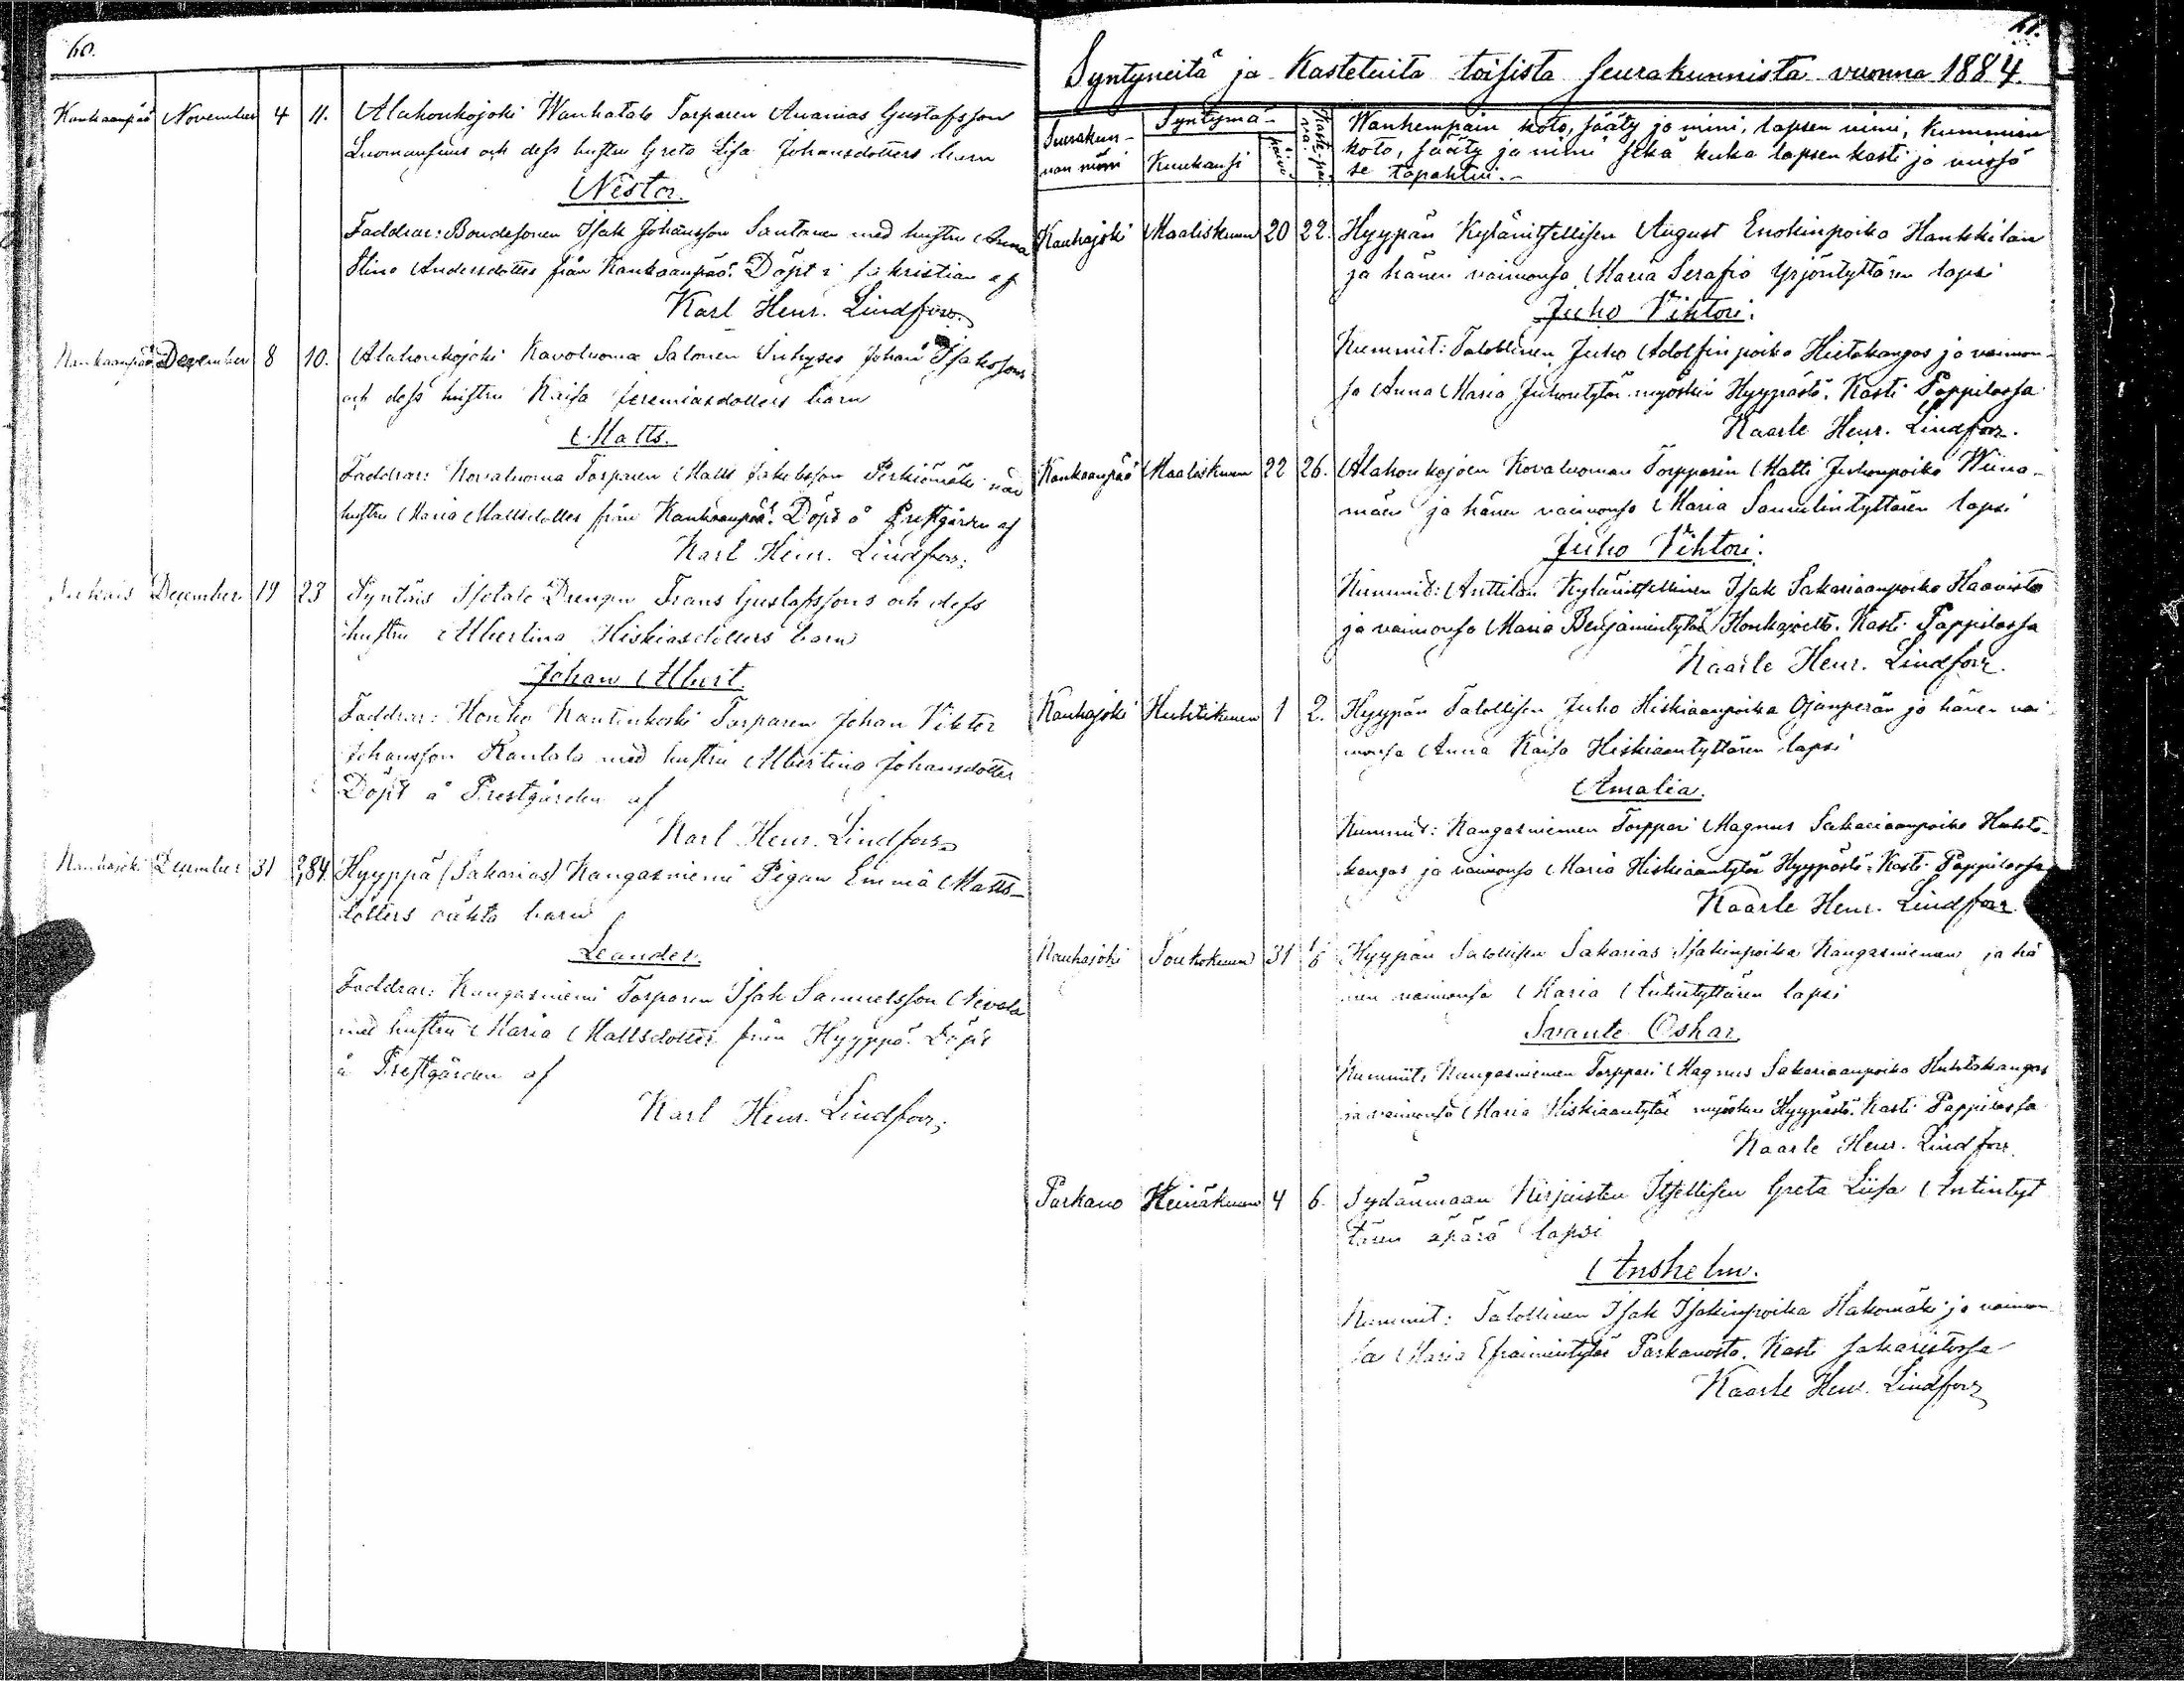 60.
Kankaanpää November 4 11. Alahonkojoki Wanhatalo Torparen Ananias Gustafsson
Luomansuus och dess hustru Greta Lisa Johansdotters barn
Nestor.
Faddrar: Bondesonen Isak Johansson Santanen med hustru Anna
Stina Andersdotter från Kankaanpää. Döpt i sakristian af
Karl Henr. Lindfors.
Kankaanpää December 8 10. Alahonkojoki Kovaluoma Salonen Inhyses Johan Isakssons
och dess hustru Kaisa Jeremiasdotters barn
Matts.
Faddrar: Kovaluoma Torparen Matts Jakobsson Perkiömäki med
hustru Maria Mattsdotter från Kankaanpää. Döpt å Prestgården af
Karl Henr. Lindfors.
December 19 23 Isotalo Drengen Frans Gustafssons och dess
hustru Albertina Hiskiasdotters barn
Johan Albert.
Faddrar: Honko Kantinkoski Torparen Johan Viktor
Johansson Rantala med hustru Albertina Johansdotter
Döpt å Prestgården af
Karl Henr. Lindfors
Kauhajoki December 31 84. Hyyppä (Sakarias) Kangasniemi Pigan Emma Matts-
dotters oäkta barn
Leander.
Faddrar: Kangasniemi Torparen Isak Samuelsson Nevala
med hustru Maria Mattsdotter från Hyyppä. Döpt
å Prestgården af
Karl Henr. Lindfors
61.
Syntyneitä ja Kastetuita toisista seurakunnista vuonna 1884.
Seurakun-
nan nimi
Syntymä-
Kuukausi
päivä
Kaste-päi-
vä
Wanhempain koto, sääty ja nimi, lapsen nimi, kummien
koto, sääty ja nimi sekä kuka lapsen kasti ja missä
se tapahtui.-
Kauhajoki Maaliskuun 20 22. Hyypän Kyläniitsellisen August Enokinpoika Hankkilan
ja hänen vaimonsa Maria Serafia Yrjöntyttären lapsi
Juho Vihtori.
Kummit: Talollinen Juho Adolfinpoika Hietakangas ja vaimon-
sa Anna Maria Juhontytär myöskin Hyypästä. Kasti Pappilassa
Kaarle Henr. Lindfors.
Kankaanpää Maaliskuun 22 26. Alahonkojoen Kovaluoman Torpparin Matti Juhonpoika Wiina-
mäen ja hänen vaimonsa Maria Samulintyttären lapsi
Juho Vihtori.
Kummit: Anttilan Kyläniitsellinen Isak Sakariaanpoika Haavisto
ja vaimonsa Maria Benjamintytär Honkajoelta. Kasti Pappilassa
Kaarle Henr. Lindfors.
Kauhajoki Huhtikuun 1 2. Hyypän Talollisen Juho Hiskiaanpoika Ojanperän ja hänen vai-
monsa Anna Kaisa Hiskiaantyttären lapsi
Amalia.
Kummit: Kangasniemen Torppari Magnus Sakariaanpoika Huhta-
kangas ja vaimonsa Maria Hiskiaantytär Hyypästä. Kasti Pappilassa
Kaarle Henr. Lindfors
Kauhajoki Toukokuun 31 1/6 Hyypän Talollisen Sakarias Isakinpoika Kangasniemen ja hä
nen vaimonsa Maria Antintyttären lapsi
Svante Oskar.
Kummit: Kangasniemen Torppari Magnus Sakariaanpoika Huhtakangas
ja vaimonsa Maria Hiskiaantytär myöskin Hyypästä. Kasti Pappilassa
Kaarle Henr. Lindfors
Parkano Heinäkuun 4 6. Sydänmaan Kirjaisten Itsellisen Greta Liisa Antintyt
tären äpärä lapsi
Anshelm.
Kummit: Talollinen Isak Isakinpoika Hakomäki ja vaimon
sa Maria Efraimintytär Parkanosta. Kasti sakaristossa
Kaarle Henr. Lindfors